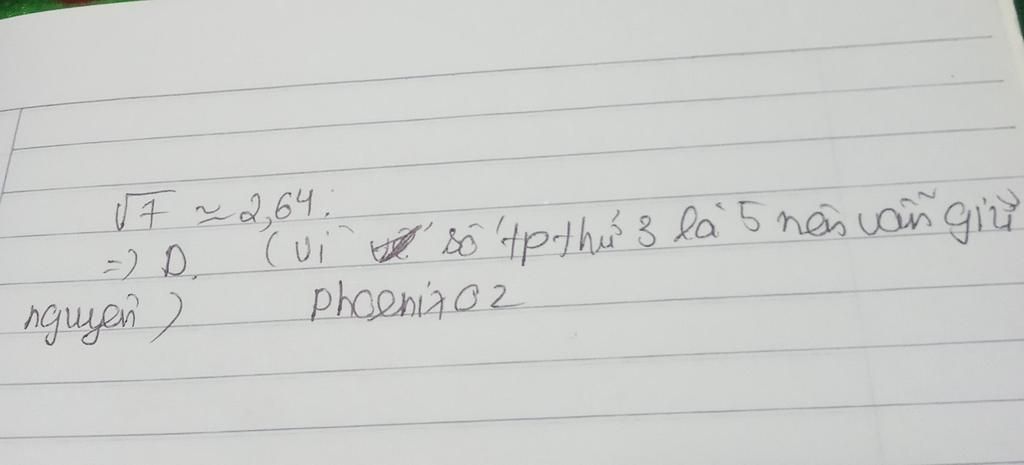 √7 ≃ 2,64.
=) D. (Vì số tp thứ 3 là 5 nên vẫn giữ
nguyên)
phoenix02